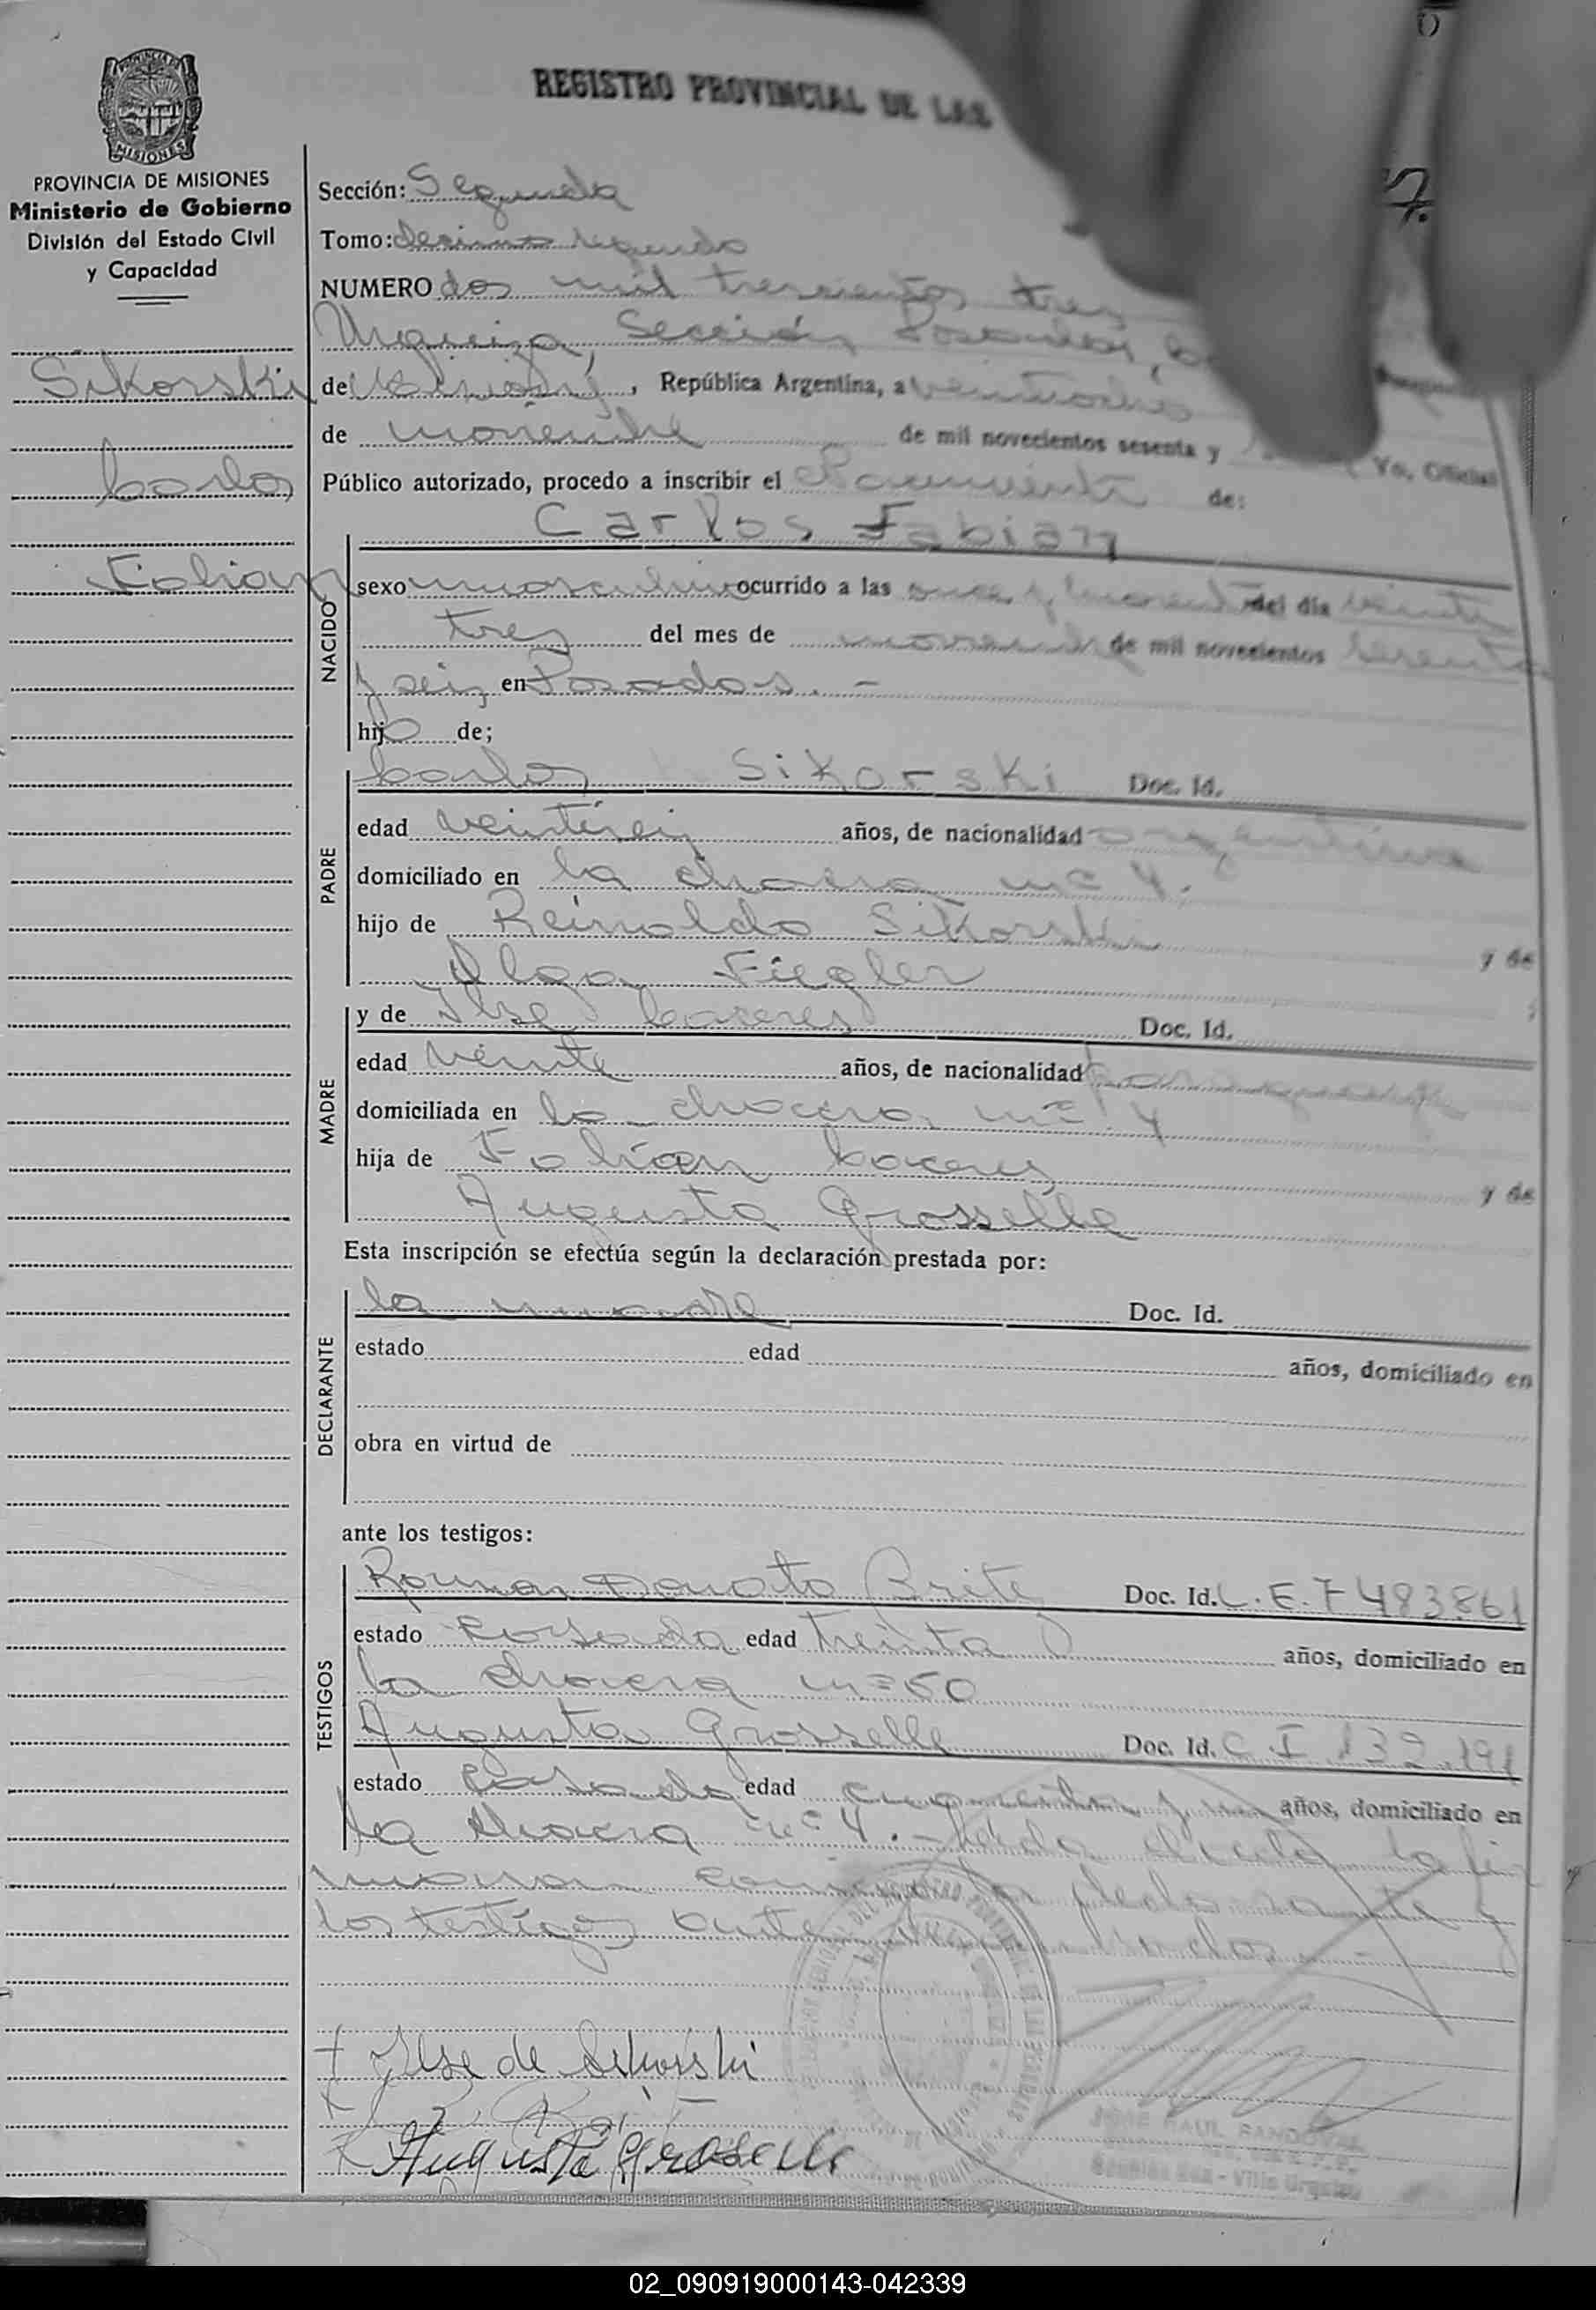 REGISTRO PROVINCIAL DE LAS
PROVINCIA DE MISIONES
Ministerio de Gobierno
División del Estado Civil
y Capacidad
Sikorski
Carlos
Fabian
Sección: Segunda
Tomo: decimo segundo
NUMERO dos mil trescientos tres
Urquiza, Sección Posadas,
de Misiones, República Argentina, a veintiocho
de noviembre de mil novecientos sesenta y Yo, Oficial
Público autorizado, procedo a inscribir el Nacimiento de:
Carlos Fabian
NACIDO
sexo masculino ocurrido a las once y cuarenta del día veinti
tres del mes de noviembre de mil novecientos sesenta
y seis en Posadas. -
hijo de;
PADRE
Carlos Sikorski Doc. Id.
edad veintiseis años, de nacionalidad argentina
domiciliado en la chacra nº 4.
hijo de Reinoldo Sikorski y de
Olga Fiegler
MADRE
y de Ilse Caceres Doc. Id.
edad veinte años, de nacionalidad paraguaya
domiciliada en la chacra nº 4
hija de Fabian Caceres y de
Augusta Grosselle
Esta inscripción se efectúa según la declaración prestada por:
DECLARANTE
la madre Doc. Id.
estado edad años, domiciliado en
obra en virtud de
ante los testigos:
TESTIGOS
Roman Donato Brite Doc. Id. L.E.7483861
estado Casado edad treinta años, domiciliado en
la chacra nº 50
Augusta Grosselle Doc. Id. C.I 132.191
estado Casada edad cuarenta y un años, domiciliado en
la chacra nº 4. - Leida el acta la fir
man conmigo la declarante y
los testigos ante nombrados. -
Ilse de Sikorski
Augusta Groselle
JOSE RAUL SANDOVAL
Sección 2da - Villa Urquiza
02_090919000143-042339